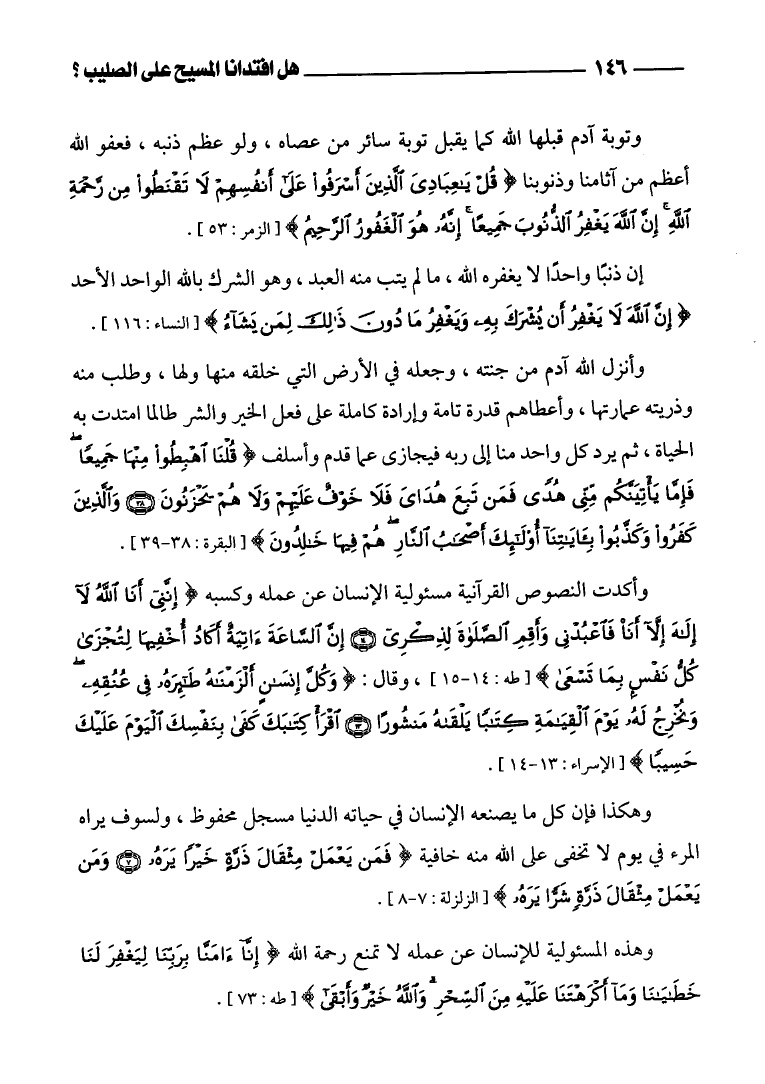 ١٤٦ هل افتدانا المسيح على الصليب ؟
وتوبة آدم قبلها الله كما يقبل توبة سائر من عصاه ، ولو عظم ذنبه ، فعفو الله
أعظم من آثامنا وذنوبنا ﴿ قُلْ يَٰعِبَادِيَ ٱلَّذِينَ أَسْرَفُوا۟ عَلَىٰٓ أَنفُسِهِمْ لَا تَقْنَطُوا۟ مِن رَّحْمَةِ
ٱللَّهِ ۚ إِنَّ ٱللَّهَ يَغْفِرُ ٱلذُّنُوبَ جَمِيعًا ۚ إِنَّهُۥ هُوَ ٱلْغَفُورُ ٱلرَّحِيمُ ﴾ [ الزمر : ٥٣ ] .
إن ذنبًا واحدًا لا يغفره الله ، ما لم يتب منه العبد ، وهو الشرك بالله الواحد الأحد
﴿ إِنَّ ٱللَّهَ لَا يَغْفِرُ أَن يُشْرَكَ بِهِۦ وَيَغْفِرُ مَا دُونَ ذَٰلِكَ لِمَن يَشَآءُ ﴾ [ النساء : ١١٦ ] .
وأنزل الله آدم من جنته ، وجعله في الأرض التي خلقه منها ولها ، وطلب منه
وذريته عمارتها ، وأعطاهم قدرة تامة وإرادة كاملة على فعل الخير والشر طالما امتدت به
الحياة ، ثم يرد كل واحد منا إلى ربه فيجازى عما قدم وأسلف ﴿ قُلْنَا ٱهْبِطُوا۟ مِنْهَا جَمِيعًا ۖ
فَإِمَّا يَأْتِيَنَّكُم مِّنِّى هُدًى فَمَن تَبِعَ هُدَاىَ فَلَا خَوْفٌ عَلَيْهِمْ وَلَا هُمْ يَحْزَنُونَ ٣٨ وَٱلَّذِينَ
كَفَرُوا۟ وَكَذَّبُوا۟ بِـَٔايَٰتِنَآ أُو۟لَٰٓئِكَ أَصْحَٰبُ ٱلنَّارِ ۖ هُمْ فِيهَا خَٰلِدُونَ ﴾ [ البقرة : ٣٨-٣٩ ] .
وأكدت النصوص القرآنية مسئولية الإنسان عن عمله وكسبه ﴿ إِنَّنِىٓ أَنَا ٱللَّهُ لَآ
إِلَٰهَ إِلَّآ أَنَا۠ فَٱعْبُدْنِى وَأَقِمِ ٱلصَّلَوٰةَ لِذِكْرِىٓ ١٤ إِنَّ ٱلسَّاعَةَ ءَاتِيَةٌ أَكَادُ أُخْفِيهَا لِتُجْزَىٰ
كُلُّ نَفْسٍۭ بِمَا تَسْعَىٰ ﴾ [ طه : ١٤-١٥ ] ، وقال : ﴿ وَكُلَّ إِنسَٰنٍ أَلْزَمْنَٰهُ طَٰٓئِرَهُۥ فِى عُنُقِهِۦ ۖ
وَنُخْرِجُ لَهُۥ يَوْمَ ٱلْقِيَٰمَةِ كِتَٰبًا يَلْقَىٰهُ مَنشُورًا ١٣ ٱقْرَأْ كِتَٰبَكَ كَفَىٰ بِنَفْسِكَ ٱلْيَوْمَ عَلَيْكَ
حَسِيبًا ﴾ [ الإسراء : ١٣-١٤ ] .
وهكذا فإن كل ما يصنعه الإنسان في حياته الدنيا مسجل محفوظ ، ولسوف يراه
المرء في يوم لا تخفى على الله منه خافية ﴿ فَمَن يَعْمَلْ مِثْقَالَ ذَرَّةٍ خَيْرًا يَرَهُۥ ٧ وَمَن
يَعْمَلْ مِثْقَالَ ذَرَّةٍ شَرًّا يَرَهُۥ ﴾ [ الزلزلة : ٧-٨ ] .
وهذه المسئولية للإنسان عن عمله لا تمنع رحمة الله ﴿ إِنَّآ ءَامَنَّا بِرَبِّنَا لِيَغْفِرَ لَنَا
خَطَٰيَٰنَا وَمَآ أَكْرَهْتَنَا عَلَيْهِ مِنَ ٱلسِّحْرِ ۗ وَٱللَّهُ خَيْرٌ وَأَبْقَىٰٓ ﴾ [ طه : ٧٣ ] .